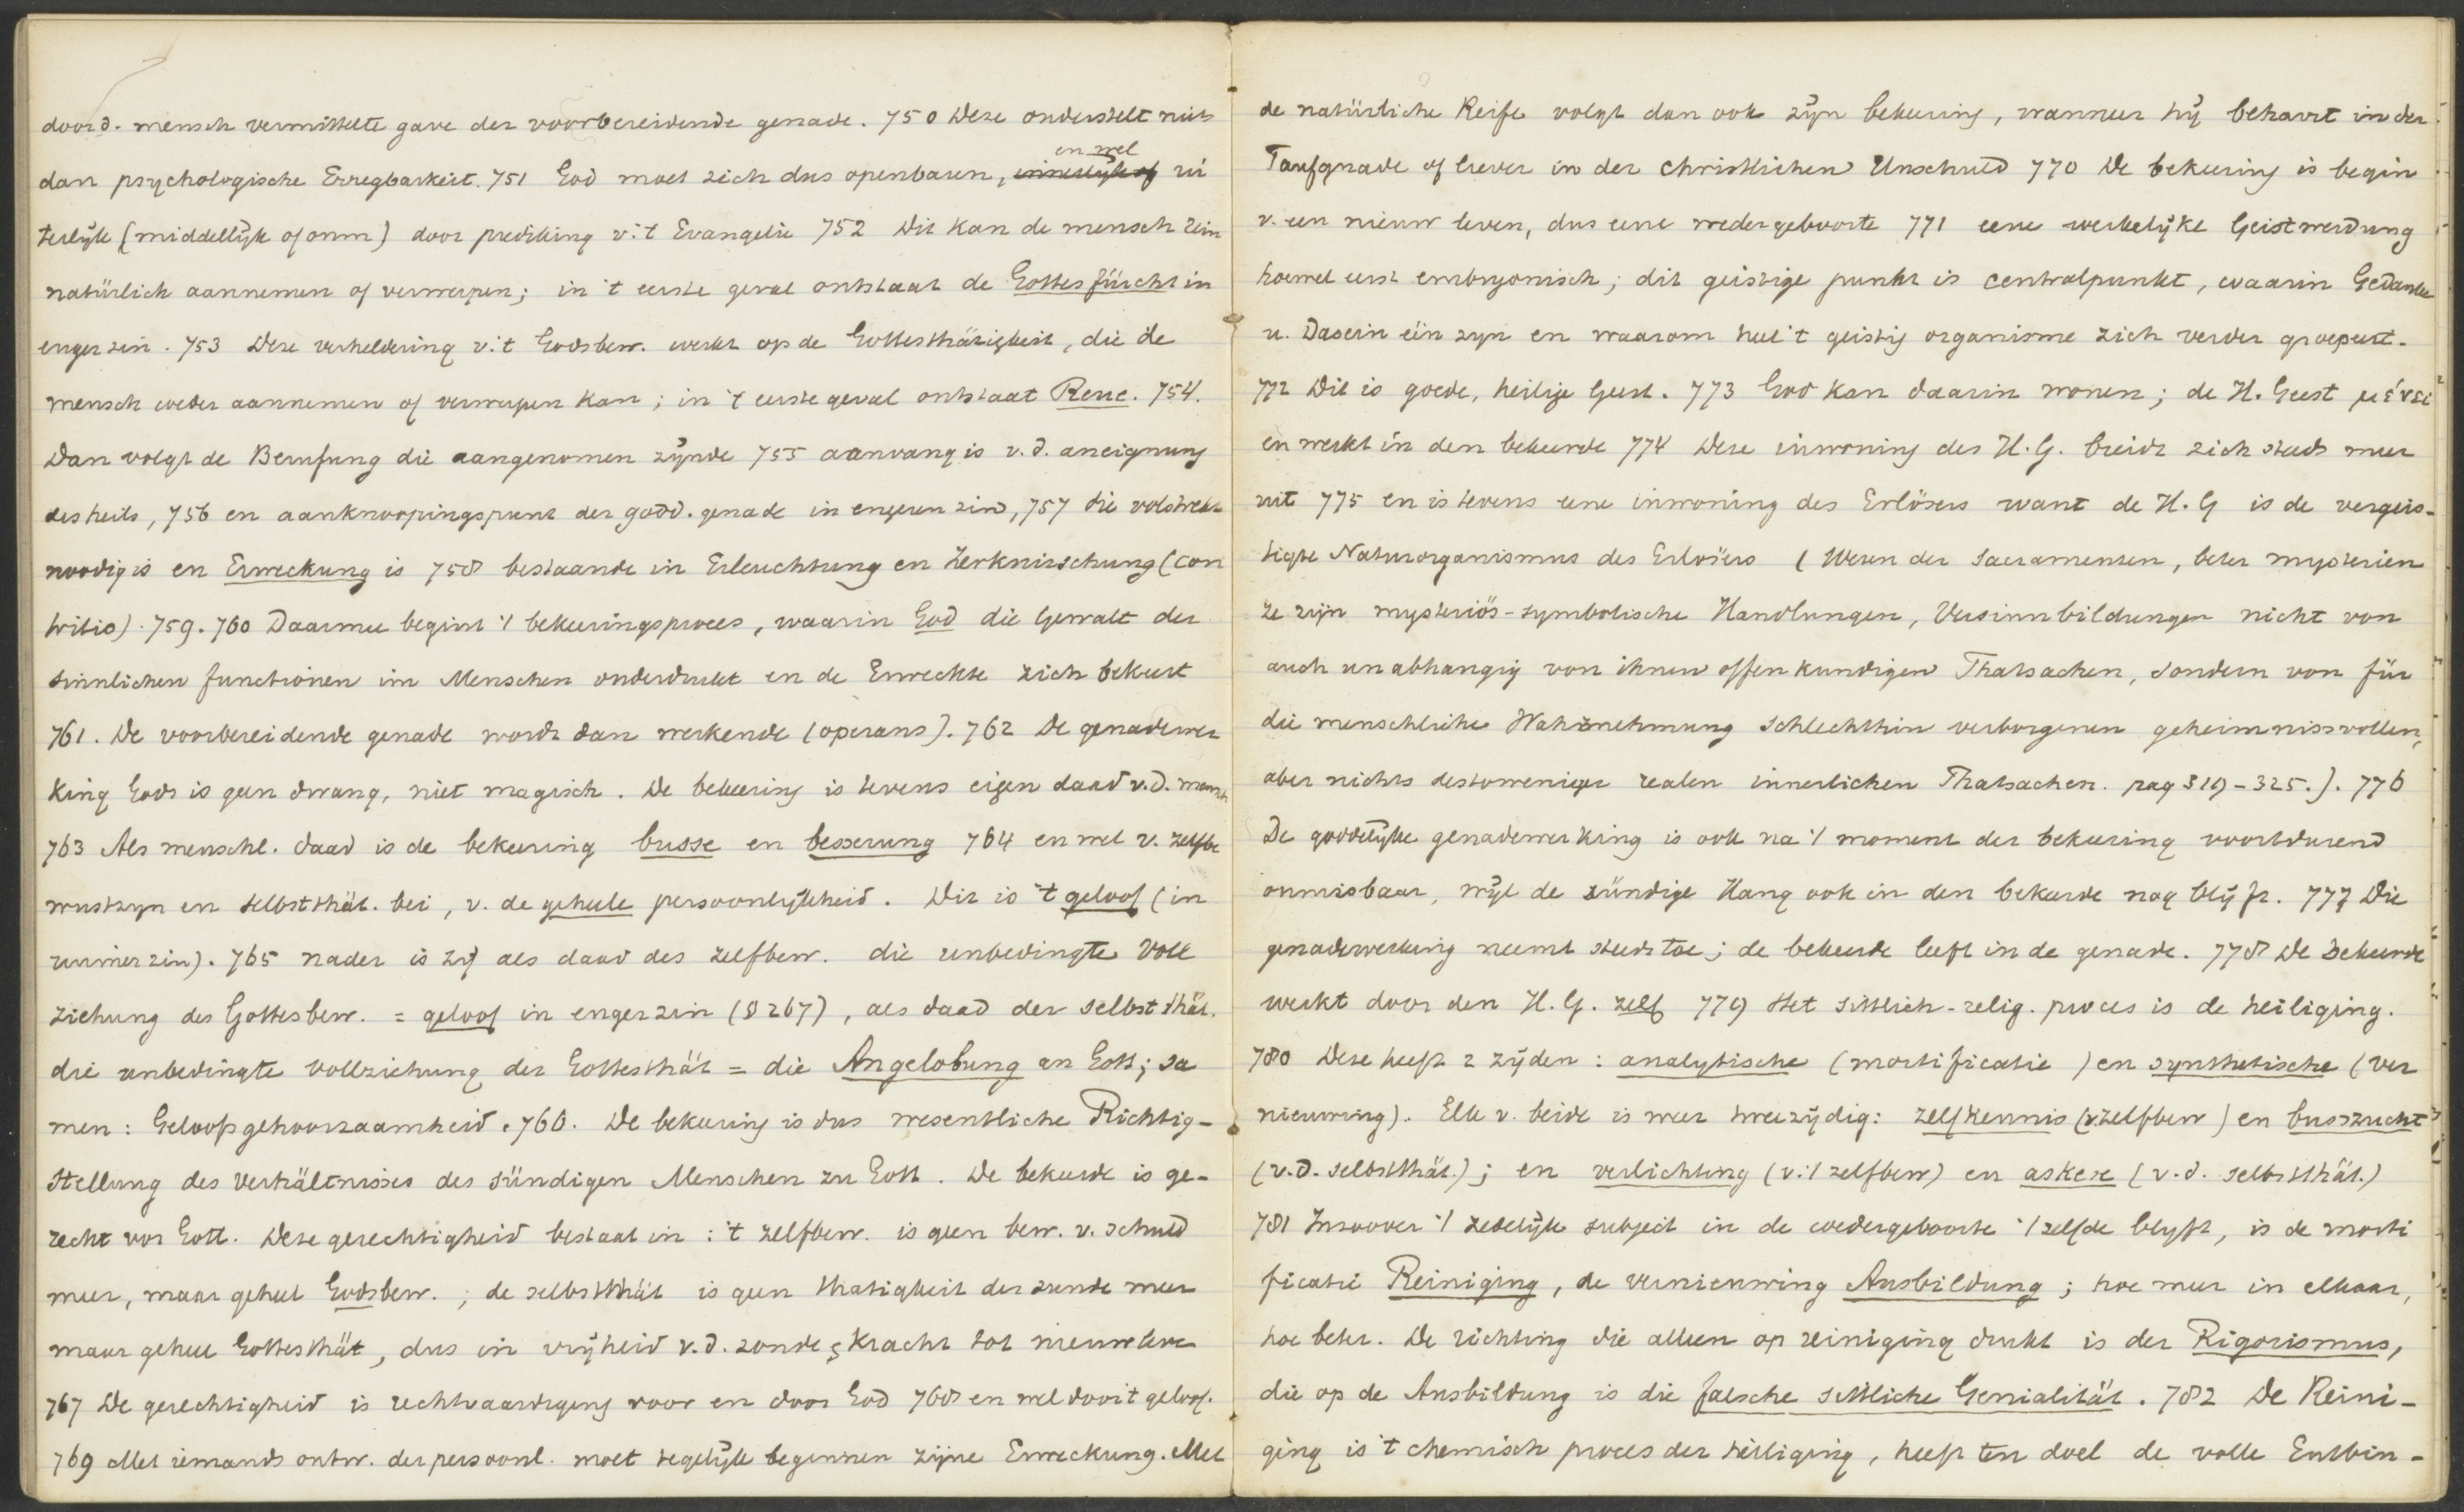 door d. mensch vermittelte gave der voorbereidende genade. 750 Deze onderstelt niets
dan psychologische Erregbarkeit. 751 God moet zich dus openbaren, en wel ui
terlijk (middellijk of onm) door prediking v. 't Evangelie 752 Dit kan de mensch rein
natürlich aannemen of verwerpen; in 't eerste geval ontstaat de Gottesfürcht in
enger zin. 753 Deze verheldering v. 't Godsbew. werkt op de Gottesthätigkeit, die de
mensch weder aannemen of verwerpen kan; in 't eerste geval ontstaat Reue. 754.
Dan volgt de Berufung die aangenomen zijnde 755 aanvang is v. d. aneignung
des heils, 756 en aanknoopingspunt der godd. genade in engeren zin, 757 die volstrekt
noodig is en Erweckung is 758 bestaande in Erleuchtung en Zerknirschung (con
tritio). 759. 760 Daarmee begint 't bekeeringsproces, waarin God die Gewalt der
sinnlichen functionen im Menschen onderdrukt en de Erweckte zich bekeert
761. De voorbereidende genade wordt dan werkende (operans). 762 De genadewer
king Gods is geen dwang, niet magisch. De bekeering is tevens eigen daad v. d. mensch
763 Als menschl. daad is de bekeering busse en besserung 764 en wel v. zelfbe
wustzyn en selbstthät. bei, v. de geheele persoonlijkheid. Dit is 't geloof (in
ruimer zin). 765 nader is zij als daad des zelfbew. die unbedingte Voll
ziehung des Gottesbew. = geloof in enger zin (§ 267), als daad der selbstthät.
die unbedingte vollziehung der Gottesthät = die Angelobung an Gott; sa
men: Geloofsgehoorzaamheid. 766. De bekeering is dus wesentliche Richtig-
stellung des Verhältnisses des sündigen Menschen zu Gott. De bekeerde is ge-
recht vor Gott. Deze gerechtigheid bestaat in: 't zelfbew. is geen bew. v. schuld
meer, maar geheel Godsbew.; de selbstthät is geen thatigkeit der zonde meer
maar geheel Gottesthät, dus in vrijheid v. d. zonde & kracht tot nieuw leven
767 De gerechtigheid is rechtvaardiging voor en door God 768 en wel door 't geloof.
769 Met iemands ontw. der persoonl. moet tegelijk beginnen zijne Erweckung. Met
de natürliche Reife volgt dan ook zijn bekeering, wanneer hij behavrt in der
Taufgnade of liever in der christlichen Unschuld 770 De bekeering is begin
v. een nieuw leven, dus eene wedergeboorte 771 eene werkelijke Geistwerdung
hoewel eerst embryonisch; dit geistige punkt is centralpunkt, waarin Gedanke
u. Dasein één zyn en waarom heel 't geistig organisme zich verder groepeert.
772 Dit is goede, heilige Geest. 773 God kan daarin wonen; de H. Geest μένει
en werkt in den bekeerde 774 Deze inwoning des H. G. breidt zich steeds meer
uit 775 en is tevens eene inwoning des Erlösers want de H. G is de vergeis-
tigte Naturorganismus des Erlösers (Wesen der Sacramenten, beter mysterien
ze zijn mysteriös-symbolische Handlungen, Versinnbildungen nicht von
auch unabhangig von ihnen offenkundigen Thatsachen, sondern von für
die menschliche Wahrnehmung schlechthin verborgenen geheimnissvollen,
aber nichts destoweniger realen innerlichen Thatsachen. pag 319-325.). 776
De goddelijke genadewerking is ook na 't moment der bekeering voortdurend
onmisbaar, wijl de sündige Hang ook in den bekeerde nog blijft. 777 Die
genadewerking neemt steeds toe; de bekeerde leeft in de genade. 778 De bekeerde
werkt door den H. G. zelf 779 Het sittlich-relig. proces is de heiliging.
780 Deze heeft 2 zijden: analytische (mortificatie) en synthetische (ver
nieuwing). Elk v. beide is weer tweezijdig: zelfkennis (v. zelfbew) en busszucht
(v. d. selbstthät.); en verlichting (v. 't zelfbew) en askese (v. d. selbstthät.)
781 Inzoover 't zedelijk subject in de wedergeboorte 't zelfde blyft, is de morti
ficatie Reiniging, de vernieuwing Ausbildung; hoe meer in elkaar,
hoe beter. De richting die alleen op reiniging drukt is der Rigorismus,
die op de Ausbildung is die falsche sittliche Genialität. 782 De Reini-
ging is 't chemisch proces der heiliging, heeft ten doel de volle Entbin-